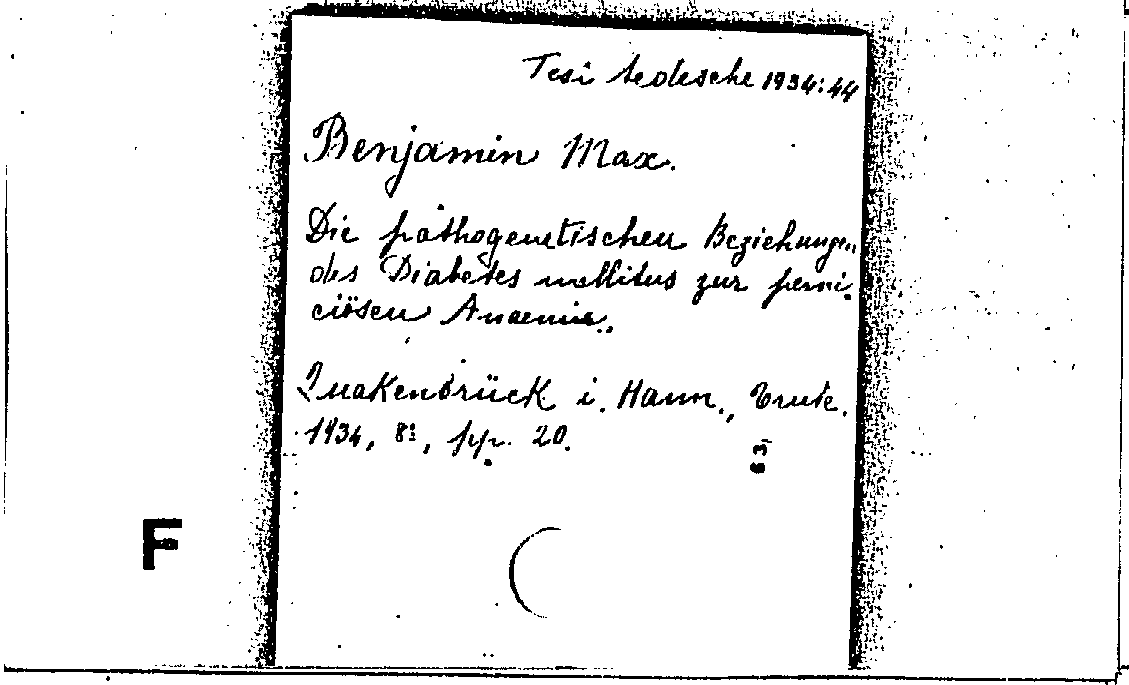 Tesi tedesche 1934:44
Benjamin Max.
Die pathogenetischen Beziehungen
des Diabetes mellitus zur perni-
ciösen Anaemie.
Quakenbrück i. Hann., Trute.
1934, 8º, pp. 20.
63
F